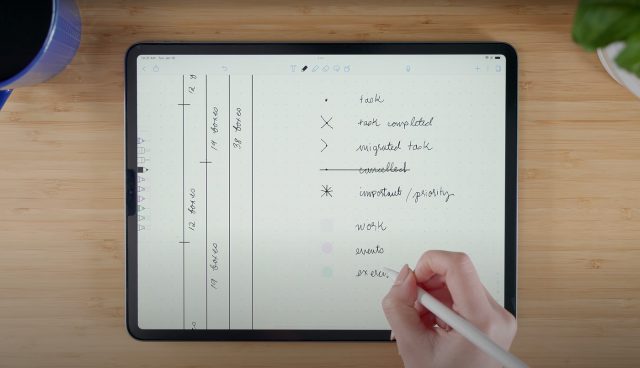 task
task completed
migrated task
cancelled
important/priority
work
events
exerc
12 boxes
19 boxes
38 boxes
12 boxes
19 boxes